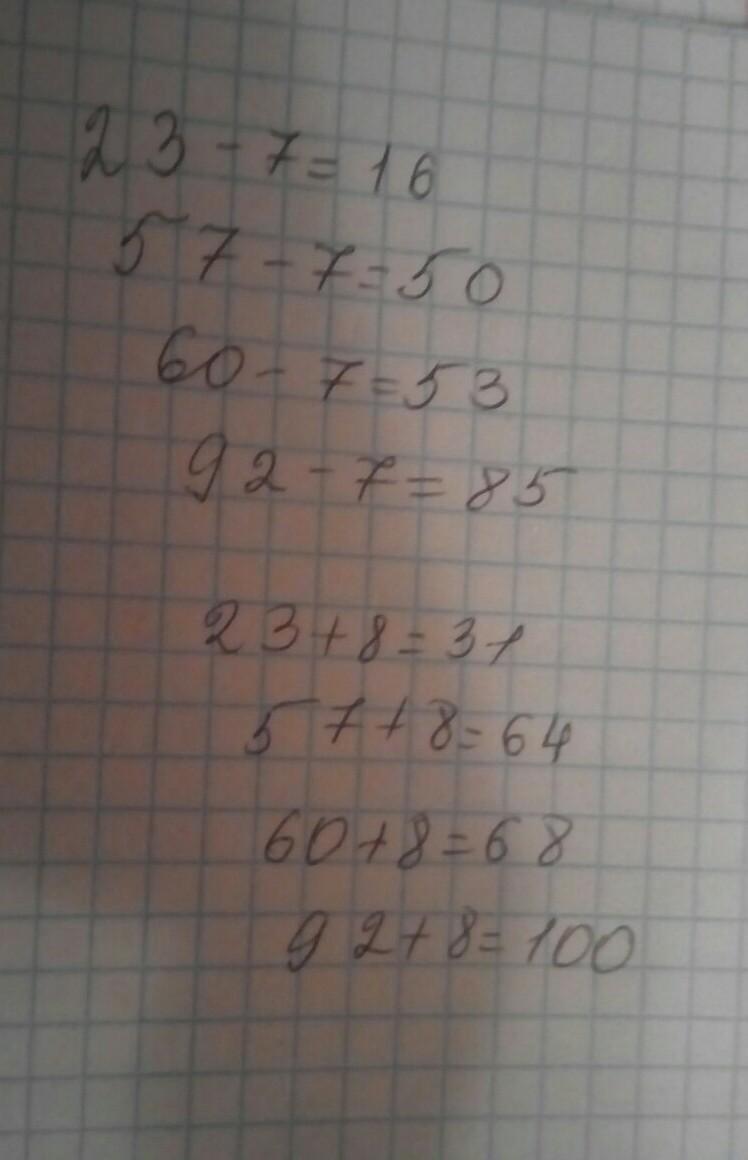 23-7=16
57-7=50
60-7=53
92-7=85
23+8=31
57+8=64
60+8=68
92+8=100